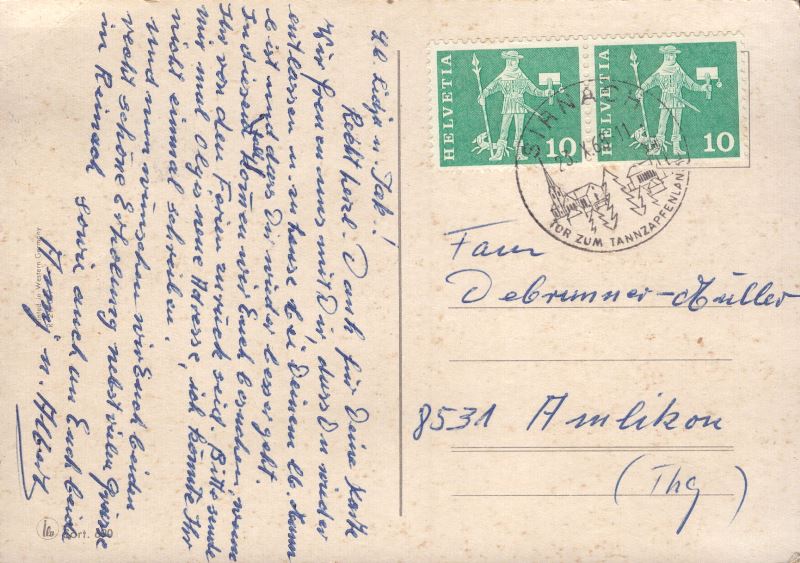 Lb. Lidja u. Jak!
Recht herzl. Dank für Deine Karte
Wir freuen uns mit Dir, dass Du wieder
entlassen u. zuhause bei Deinem lb. Mann
bist und dass Dir wieder besser geht.
In diesem Fall können wir Euch besuchen, wenn
Ihr von den Ferien zurück seid. Bitte sende
mir mal Olgis neue Adresse, ich könnte Ihr
nicht einmal schreiben.
Und nun wünschen wir Euch beiden
recht schöne Erholung nebst vielen Grüssen
in Reinach sowie auch an Euch beide
Armij u. Albert
Printed in Western Germany
Sort. 800
HELVETIA 10
HELVETIA 10
SIRNACH
TOR ZUM TANNZAPFENLAND
Fam
Debrunner-Müller
8531 Amlikon
(Thg)